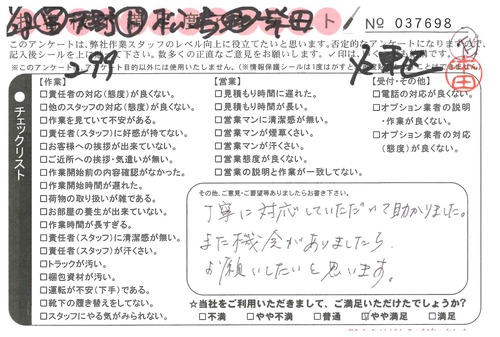 ト No 037698
このアンケートは、弊社作業スタッフのレベル向上に役立てたいと思います。否定的なアンケートになりますので、
5.99
【作業】
□責任者の対応(態度)が良くない。
□他のスタッフの対応(態度)が良くない。
□作業を見ていて不安がある。
□責任者(スタッフ)に好感が持てない。
□お客様への挨拶が出来ていない。
□ご近所への挨拶・気遣いが無い。
□作業開始前の内容確認がなかった。
□作業開始時間が遅れた。
□荷物の取り扱いが雑である。
□お部屋の養生が出来ていない。
□作業時間が長すぎる。
□責任者(スタッフ)に清潔感が無い。
□責任者(スタッフ)が汗くさい。
□トラックが汚い。
□梱包資材が汚い。
□運転が不安(下手)である。
□靴下の履き替えをしてない。
□スタッフにやる気がみられない。
【営業】
□見積もり時間に遅れた。
□見積もり時間が長い。
□営業マンに清潔感が無い。
□営業マンが煙草くさい。
□営業マンが汗くさい。
□営業態度が良くない。
□営業の説明と作業が一致してない。
【受付・その他】
□電話の対応が良くない。
□オプション業者の説明
・作業が良くない。
□オプション業者の対応
(態度)が良くない。
チェックリスト
その他、ご意見・ご要望等ありましたらお書き下さい。
丁寧に対応していただいて助かりました。
また機会がありましたら
お願いしたいと思います。
☆当社をご利用いただきまして、ご満足いただけたでしょうか?
□不満 □やや不満 □普通 ☑やや満足 □満足